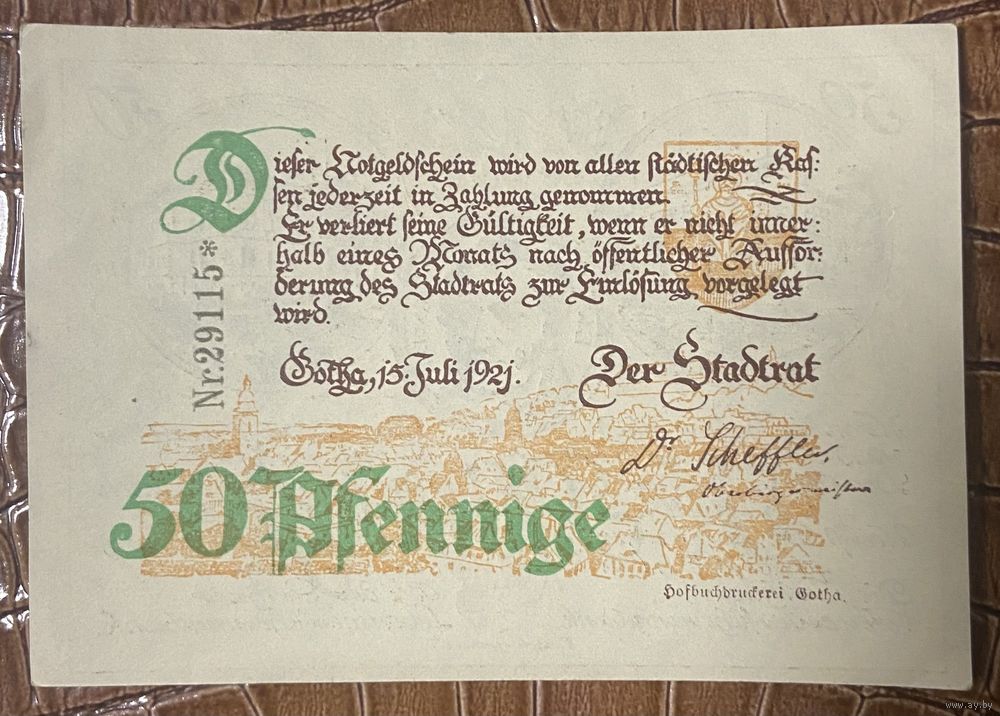 Dieser Notgeldschein wird von allen städtischen Kas:
sen jederzeit in Zahlung genommen.
Er verliert seine Gültigkeit, wenn er nicht inner:
halb eines Monats nach öffentlicher Auffor:
derung des Stadtrats zur Einlösung vorgelegt
wird.
Nr.29115*
Gotha, 15. Juli 1921.
Der Stadtrat
Dr Scheffler.
Oberbürgermeister
50 Pfennige
Hofbuchdruckerei Gotha.
www.ay.by